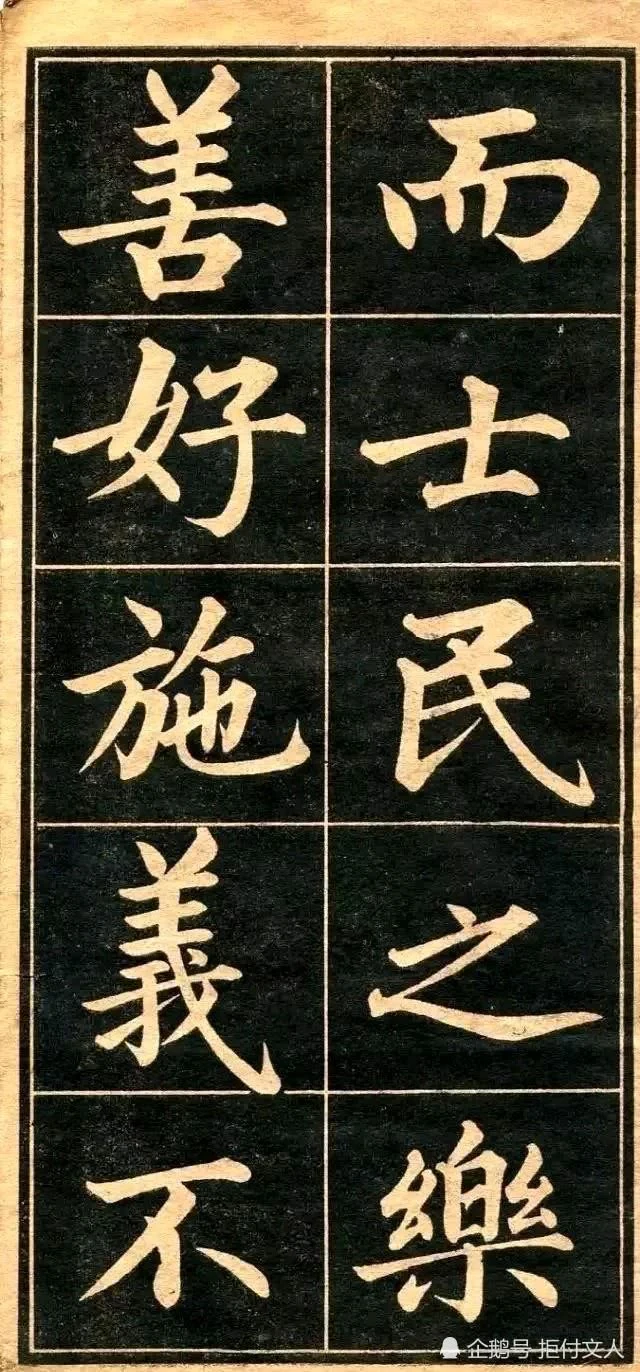 而士民之樂
善好施義不
企鹅号 拒付文人